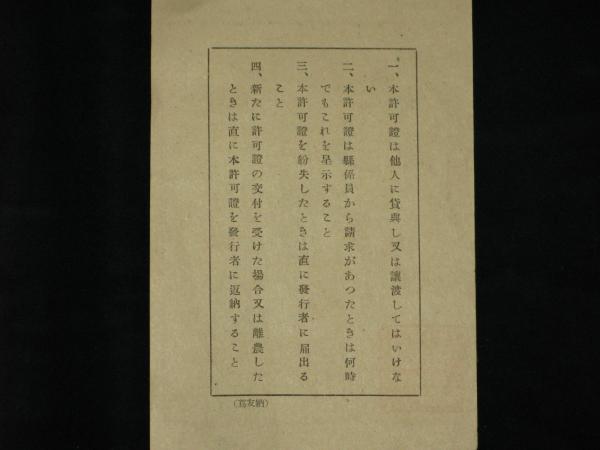 一、本許可證は他人に貸與し又は讓渡してはいけな
い
二、本許可證は縣係員から請求があつたときは何時
でもこれを呈示すること
三、本許可證を紛失したときは直に發行者に届出る
こと
四、新たに許可證の交付を受けた場合又は離農した
ときは直に本許可證を發行者に返納すること